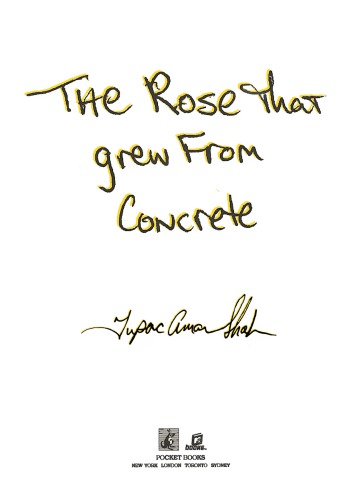 THE ROSE THAT
grew FROM
CONCRETE
Tupac Amaru Shakur
books
POCKET BOOKS
NEW YORK LONDON TORONTO SYDNEY